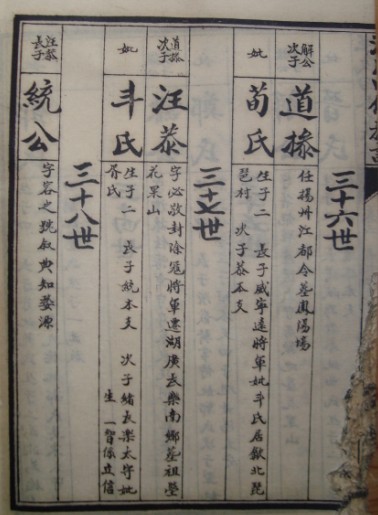 三十六世
解公次子
道㨗
任揚州江都令墓鳳陽塲
妣
荀氏
生子二 長子威寧遠將軍妣斗氏居歙北毘
琶村 次子恭本支
三十七世
道㨗次子
汪恭
字必敬封除冦將軍遷湖廣長樂南鄉墓祖塋
花果山
妣
斗氏
生子二 長子統本支 次子緒長樂太守妣
胥氏 生 一智係立信
三十八世
汪恭長子
統公
字容之號叙典知婺源